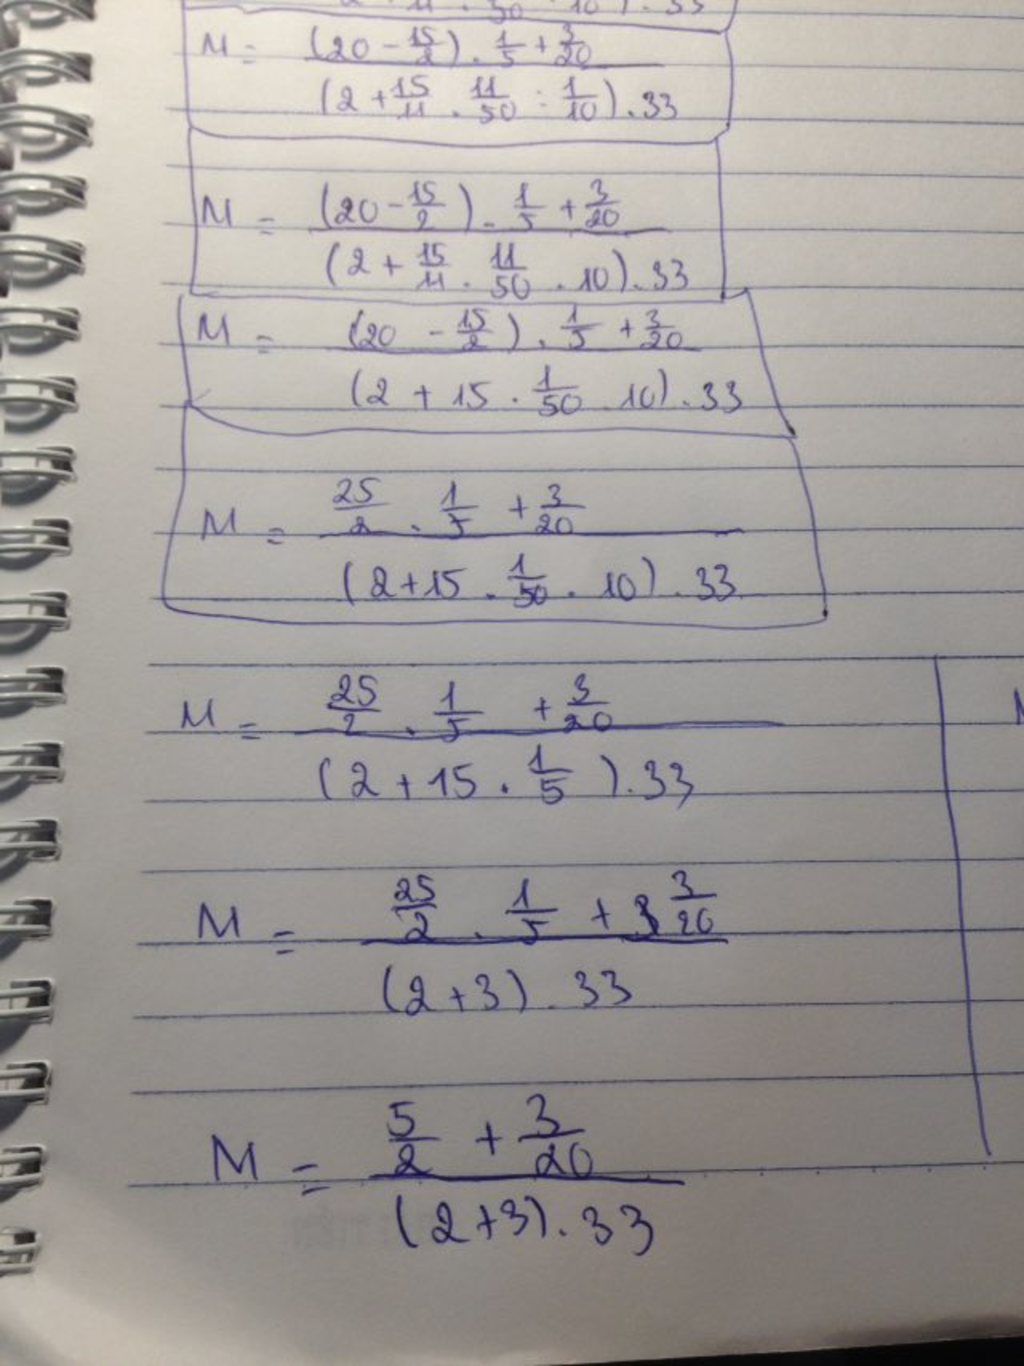 2 11 50 10 ) . 33
M = (20 - 15/2) . 1/5 + 3/20
(2 + 15/11 . 11/50 : 1/10) . 33
M = (20 - 15/2) . 1/5 + 3/20
(2 + 15/11 . 11/50 . 10) . 33
M = (20 - 15/2) . 1/5 + 3/20
(2 + 15 . 1/50 . 10) . 33
M = 25/2 . 1/5 + 3/20
(2 + 15 . 1/50 . 10) . 33
M = 25/2 . 1/5 + 3/20
(2 + 15 . 1/5 ) . 33
M = 25/2 . 1/5 + 3/20
(2 + 3) . 33
M = 5/2 + 3/20
(2 + 3) . 33